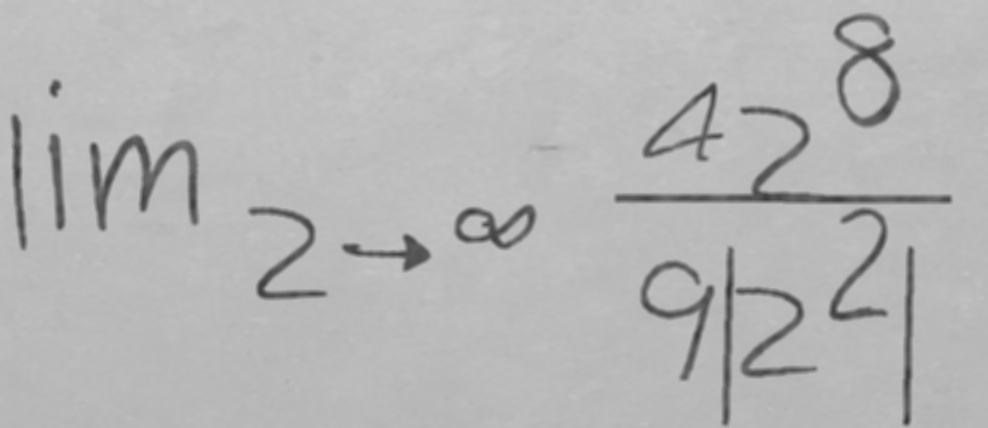 lim_{z→∞} \frac{4z^8}{9|z^2|}